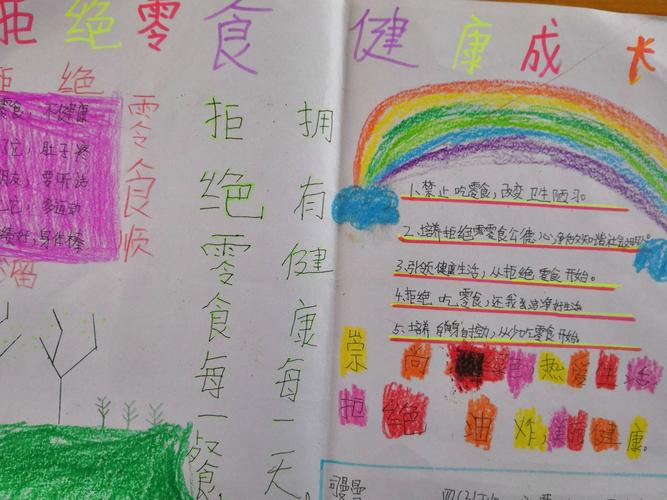 拒绝零食 健康成长
拒绝零食顺溜
零食,不健康
它,肚子疼
朋友,要听话
它,多运动
身体棒
拒绝零食每一餐,
拥有健康每一天。
1、禁止吃零食,改变卫生陋习。
2、培养拒绝零食公德心,
3、引领健康生活,从拒绝零食开始。
4、拒绝吃零食,还我洁净的生活
5、培养自身自控力,从少吃零食开始
崇尚 色,热爱生活
拒绝油炸, 健康。
四(3)班